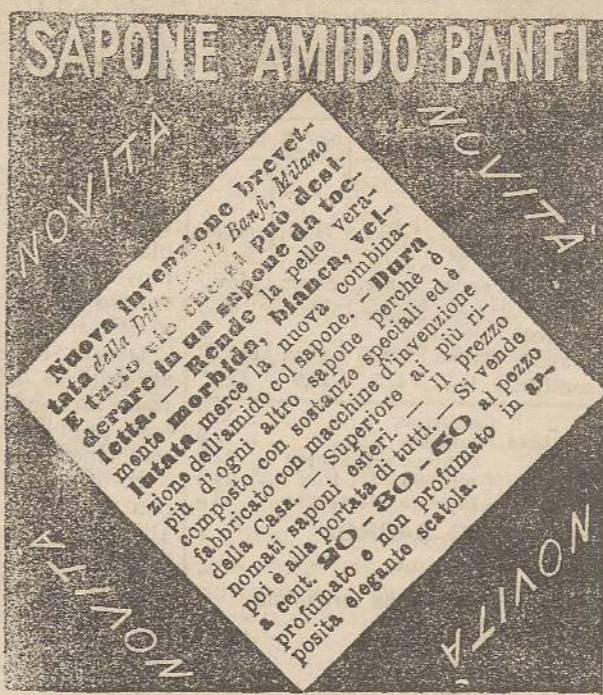 SAPONE AMIDO BANFI
NOVITÀ
NOVITÀ
Nuova invenzione brevet-
tata della Ditta Achille Banfi, Milano
E tutto ciò che si può desi-
derare in un sapone da toe-
letta. — Rende la pelle vera-
mente morbida, bianca, vel-
lutata mercè la nuova combina-
zione dell'amido col sapone. — Dura
più d'ogni altro sapone perchè è
composto con sostanze speciali ed è
fabbricato con macchine d'invenzione
della Casa. — Superiore ai più ri-
nomati saponi esteri. — Il prezzo
poi è alla portata di tutti. — Si vende
a cent. 20-30-50 al pezzo
profumato e non profumato in ap-
posita elegante scatola.
NOVITÀ
NOVITÀ